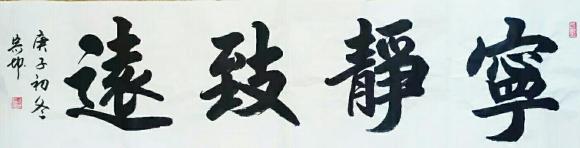 寧靜致遠
庚子初冬
吳坤